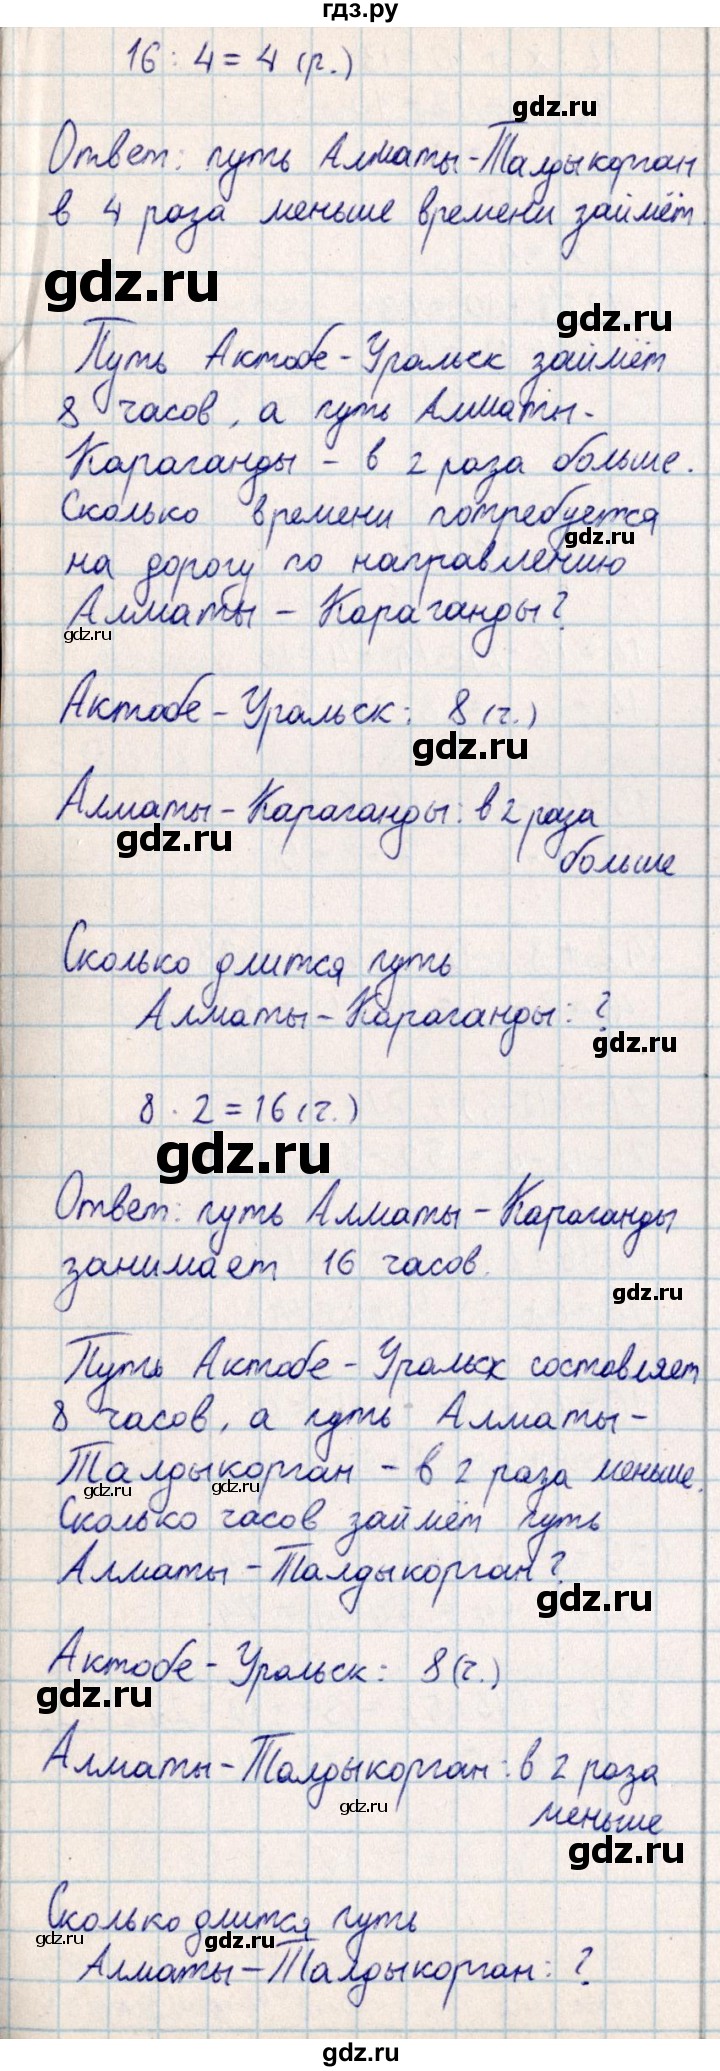 гдз.ру
16 : 4 = 4 (р.)
gdz.ru
Ответ: путь Алматы-Талдыкорган
в 4 раза меньше времени займёт.
gdz.ru
gdz.ru
Путь Актобе - Уральск займёт
8 часов, а путь Алматы-
Караганды - в 2 раза больше.
Сколько времени потребуется
gdz.ru
на дорогу по направлению
Алматы - Караганды?
gdz.ru
Актобе - Уральск: 8 (ч.)
gdz.ru
Алматы - Караганды: в 2 раза
gdz.ru
больше
Сколько длится путь
Алматы - Караганды: ?
gdz.ru
8 · 2 = 16 (ч.)
gdz.ru
Ответ: путь Алматы - Караганды
занимает 16 часов.
gdz.ru
Путь Актобе - Уральск составляет
8 часов, а путь Алматы -
Талдыкорган - в 2 раза меньше.
gdz.ru gdz.ru
Сколько часов займёт путь
Алматы - Талдыкорган?
gdz.ru
Актобе - Уральск: 8 (ч.)
gdz.ru
Алматы - Талдыкорган: в 2 раза
gdz.ru
меньше
gdz.ru
Сколько длится путь
gdz.ru gdz.ru
Алматы - Талдыкорган: ?
gdz.ru